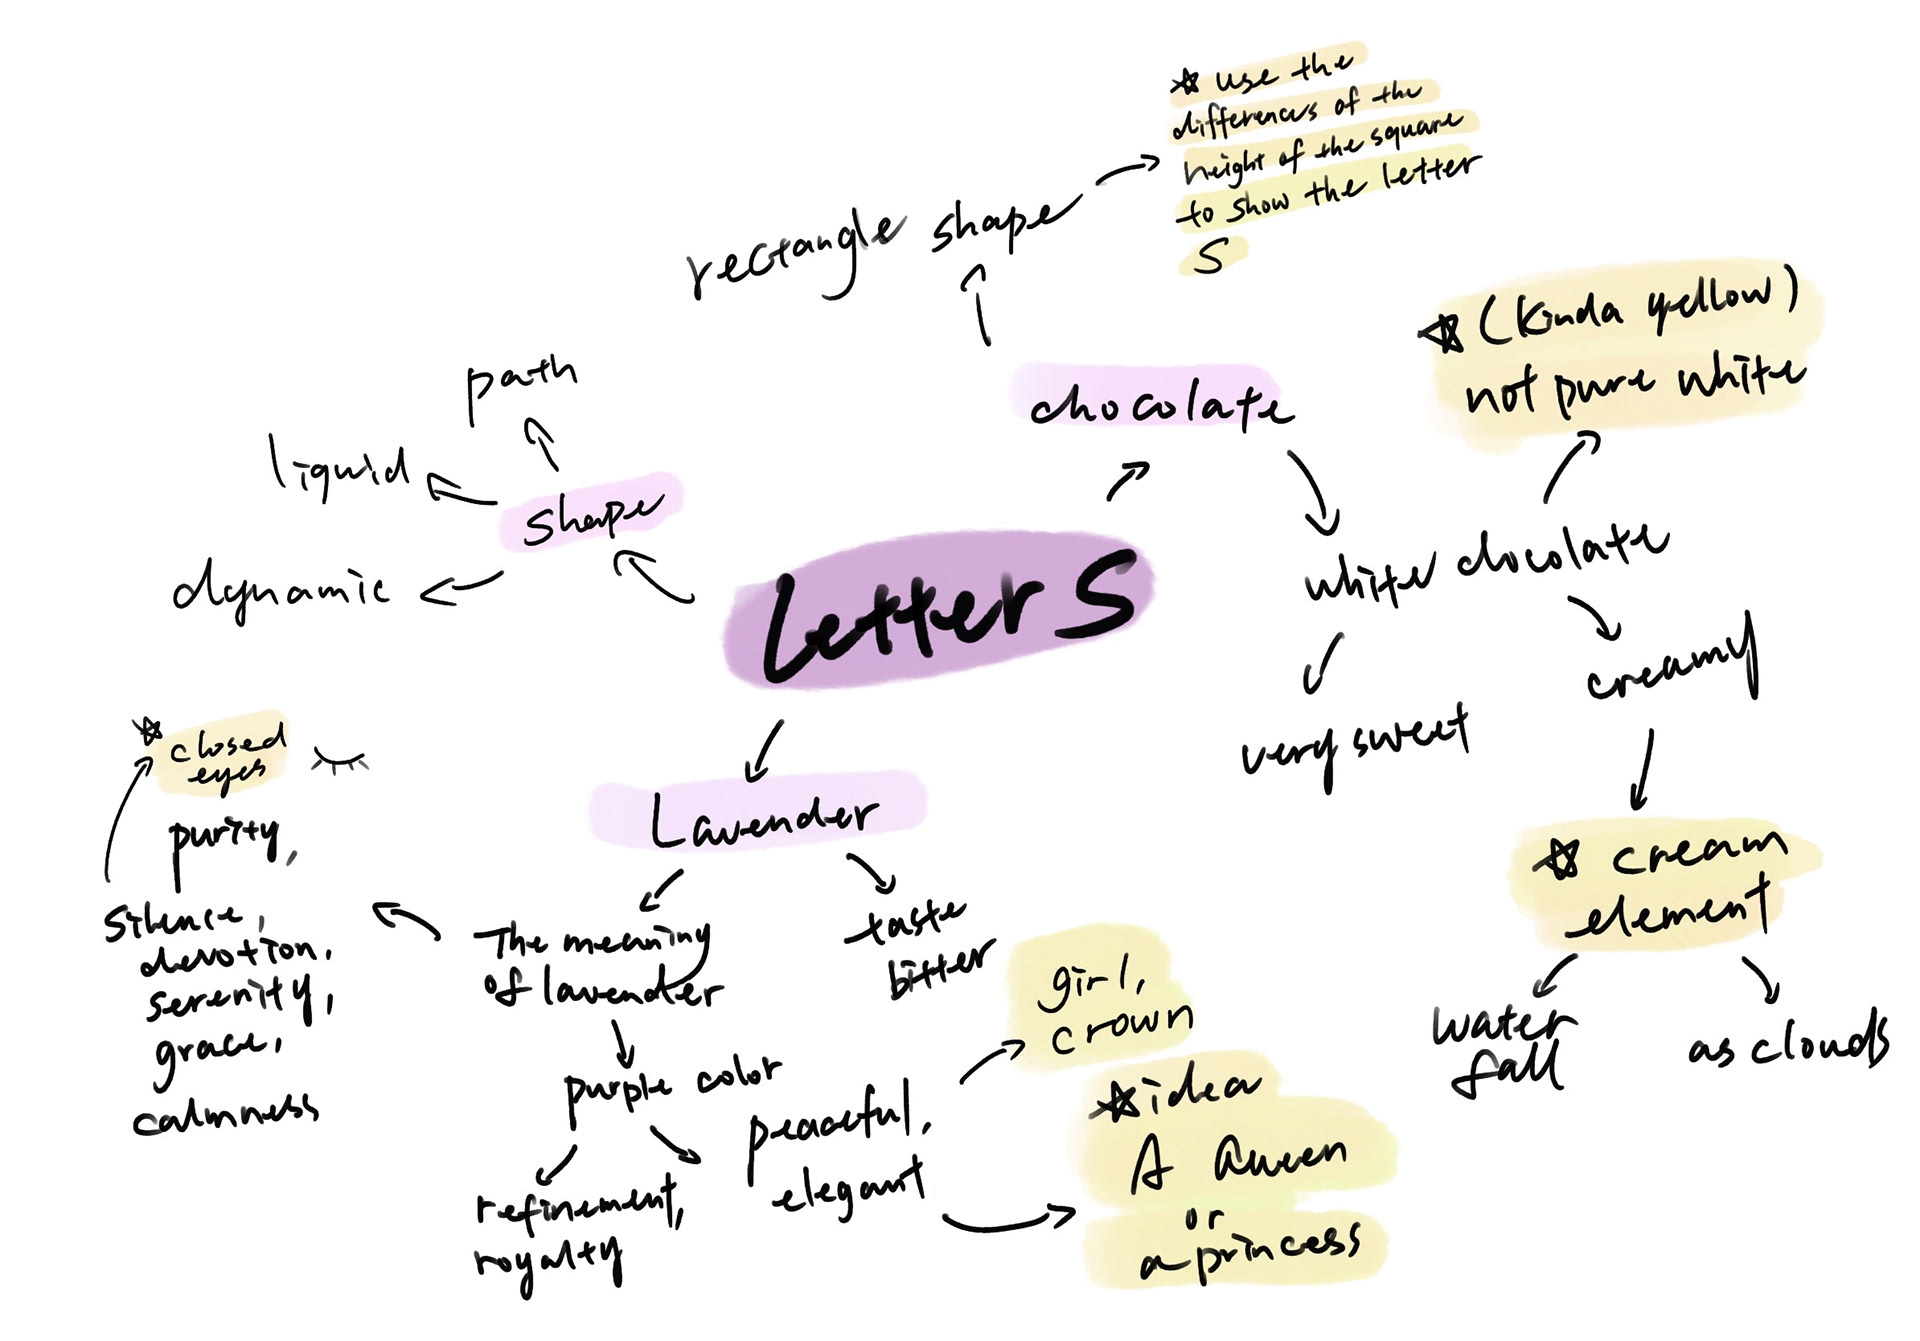 ☆ use the
differences of the
height of the square
to show the letter
S
rectangle shape
☆ (kinda yellow)
not pure white
chocolate
path
liquid
shape
dynamic
Letter S
white chocolate
creamy
very sweet
☆ closed
eyes
purity,
Silence,
devotion,
serenity,
grace,
calmness
Lavender
The meaning
of lavender
taste
bitter
purple color
refinement,
royalty
peaceful,
elegant
girl,
crown
☆ idea
A Queen
or
a princess
☆ cream
element
water
fall
as clouds